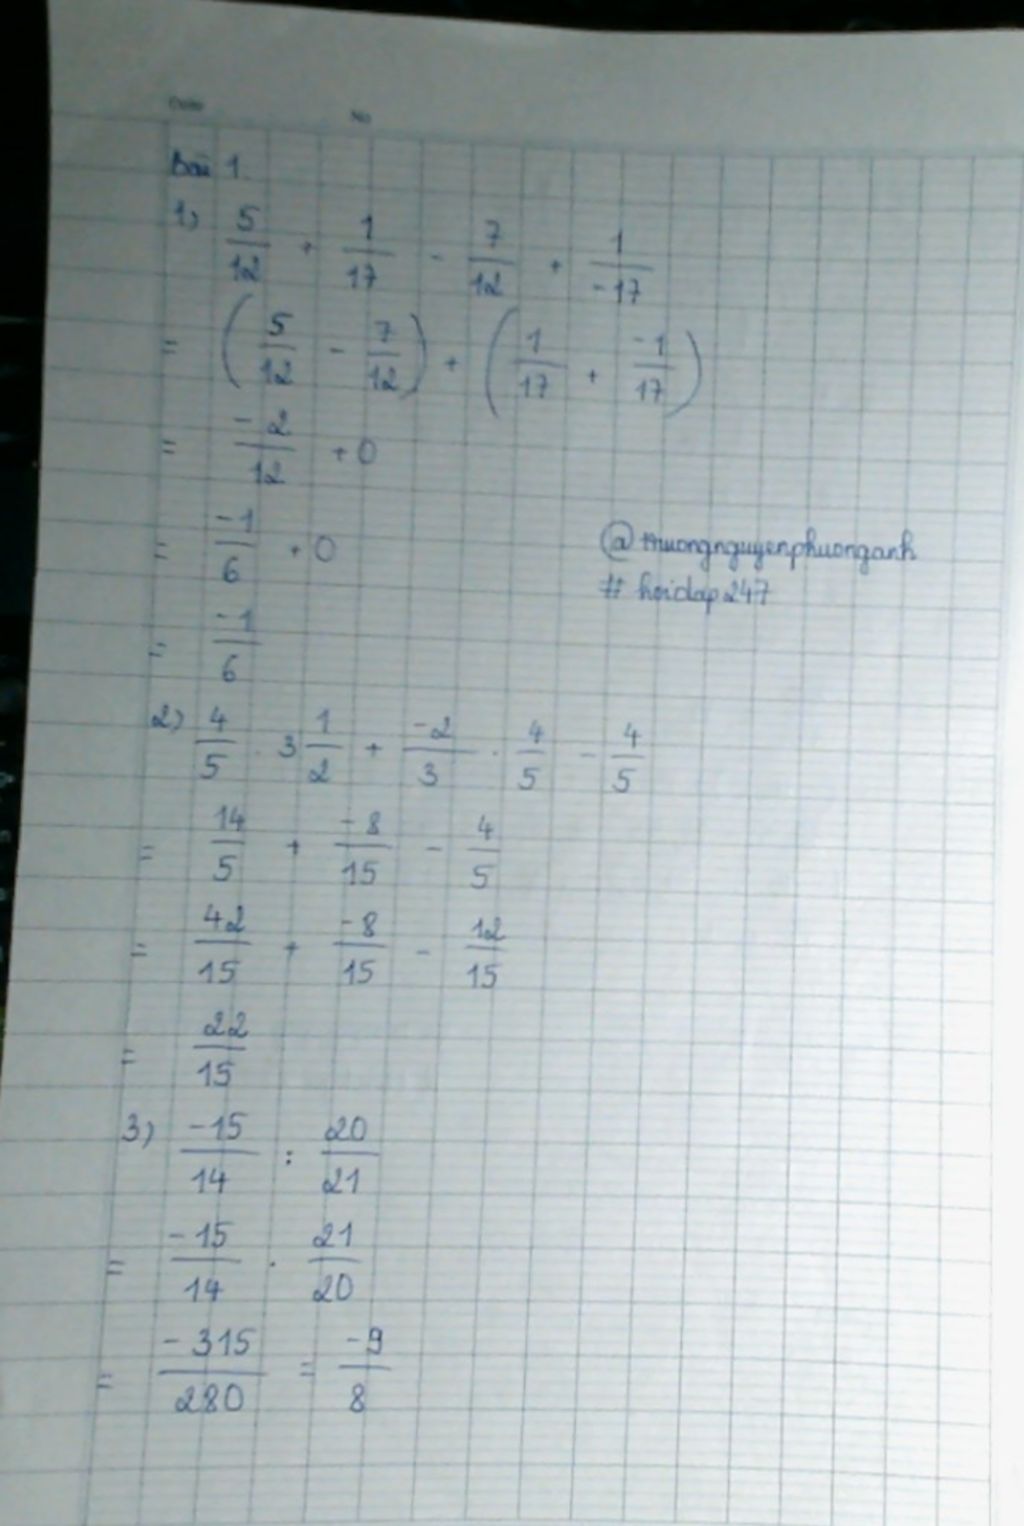 Date No
Bài 1.
1) 5/12 + 1/17 - 7/12 + 1/-17
= (5/12 - 7/12) + (1/17 + -1/17)
= -2/12 + 0
= -1/6 + 0
@truongnguyenphuonganh
# hoidap247
= -1/6
2) 4/5 . 3 1/2 + -2/3 . 4/5 - 4/5
= 14/5 + -8/15 - 4/5
= 42/15 + -8/15 - 12/15
= 22/15
3) -15/14 : 20/21
= -15/14 . 21/20
= -315/280 = -9/8